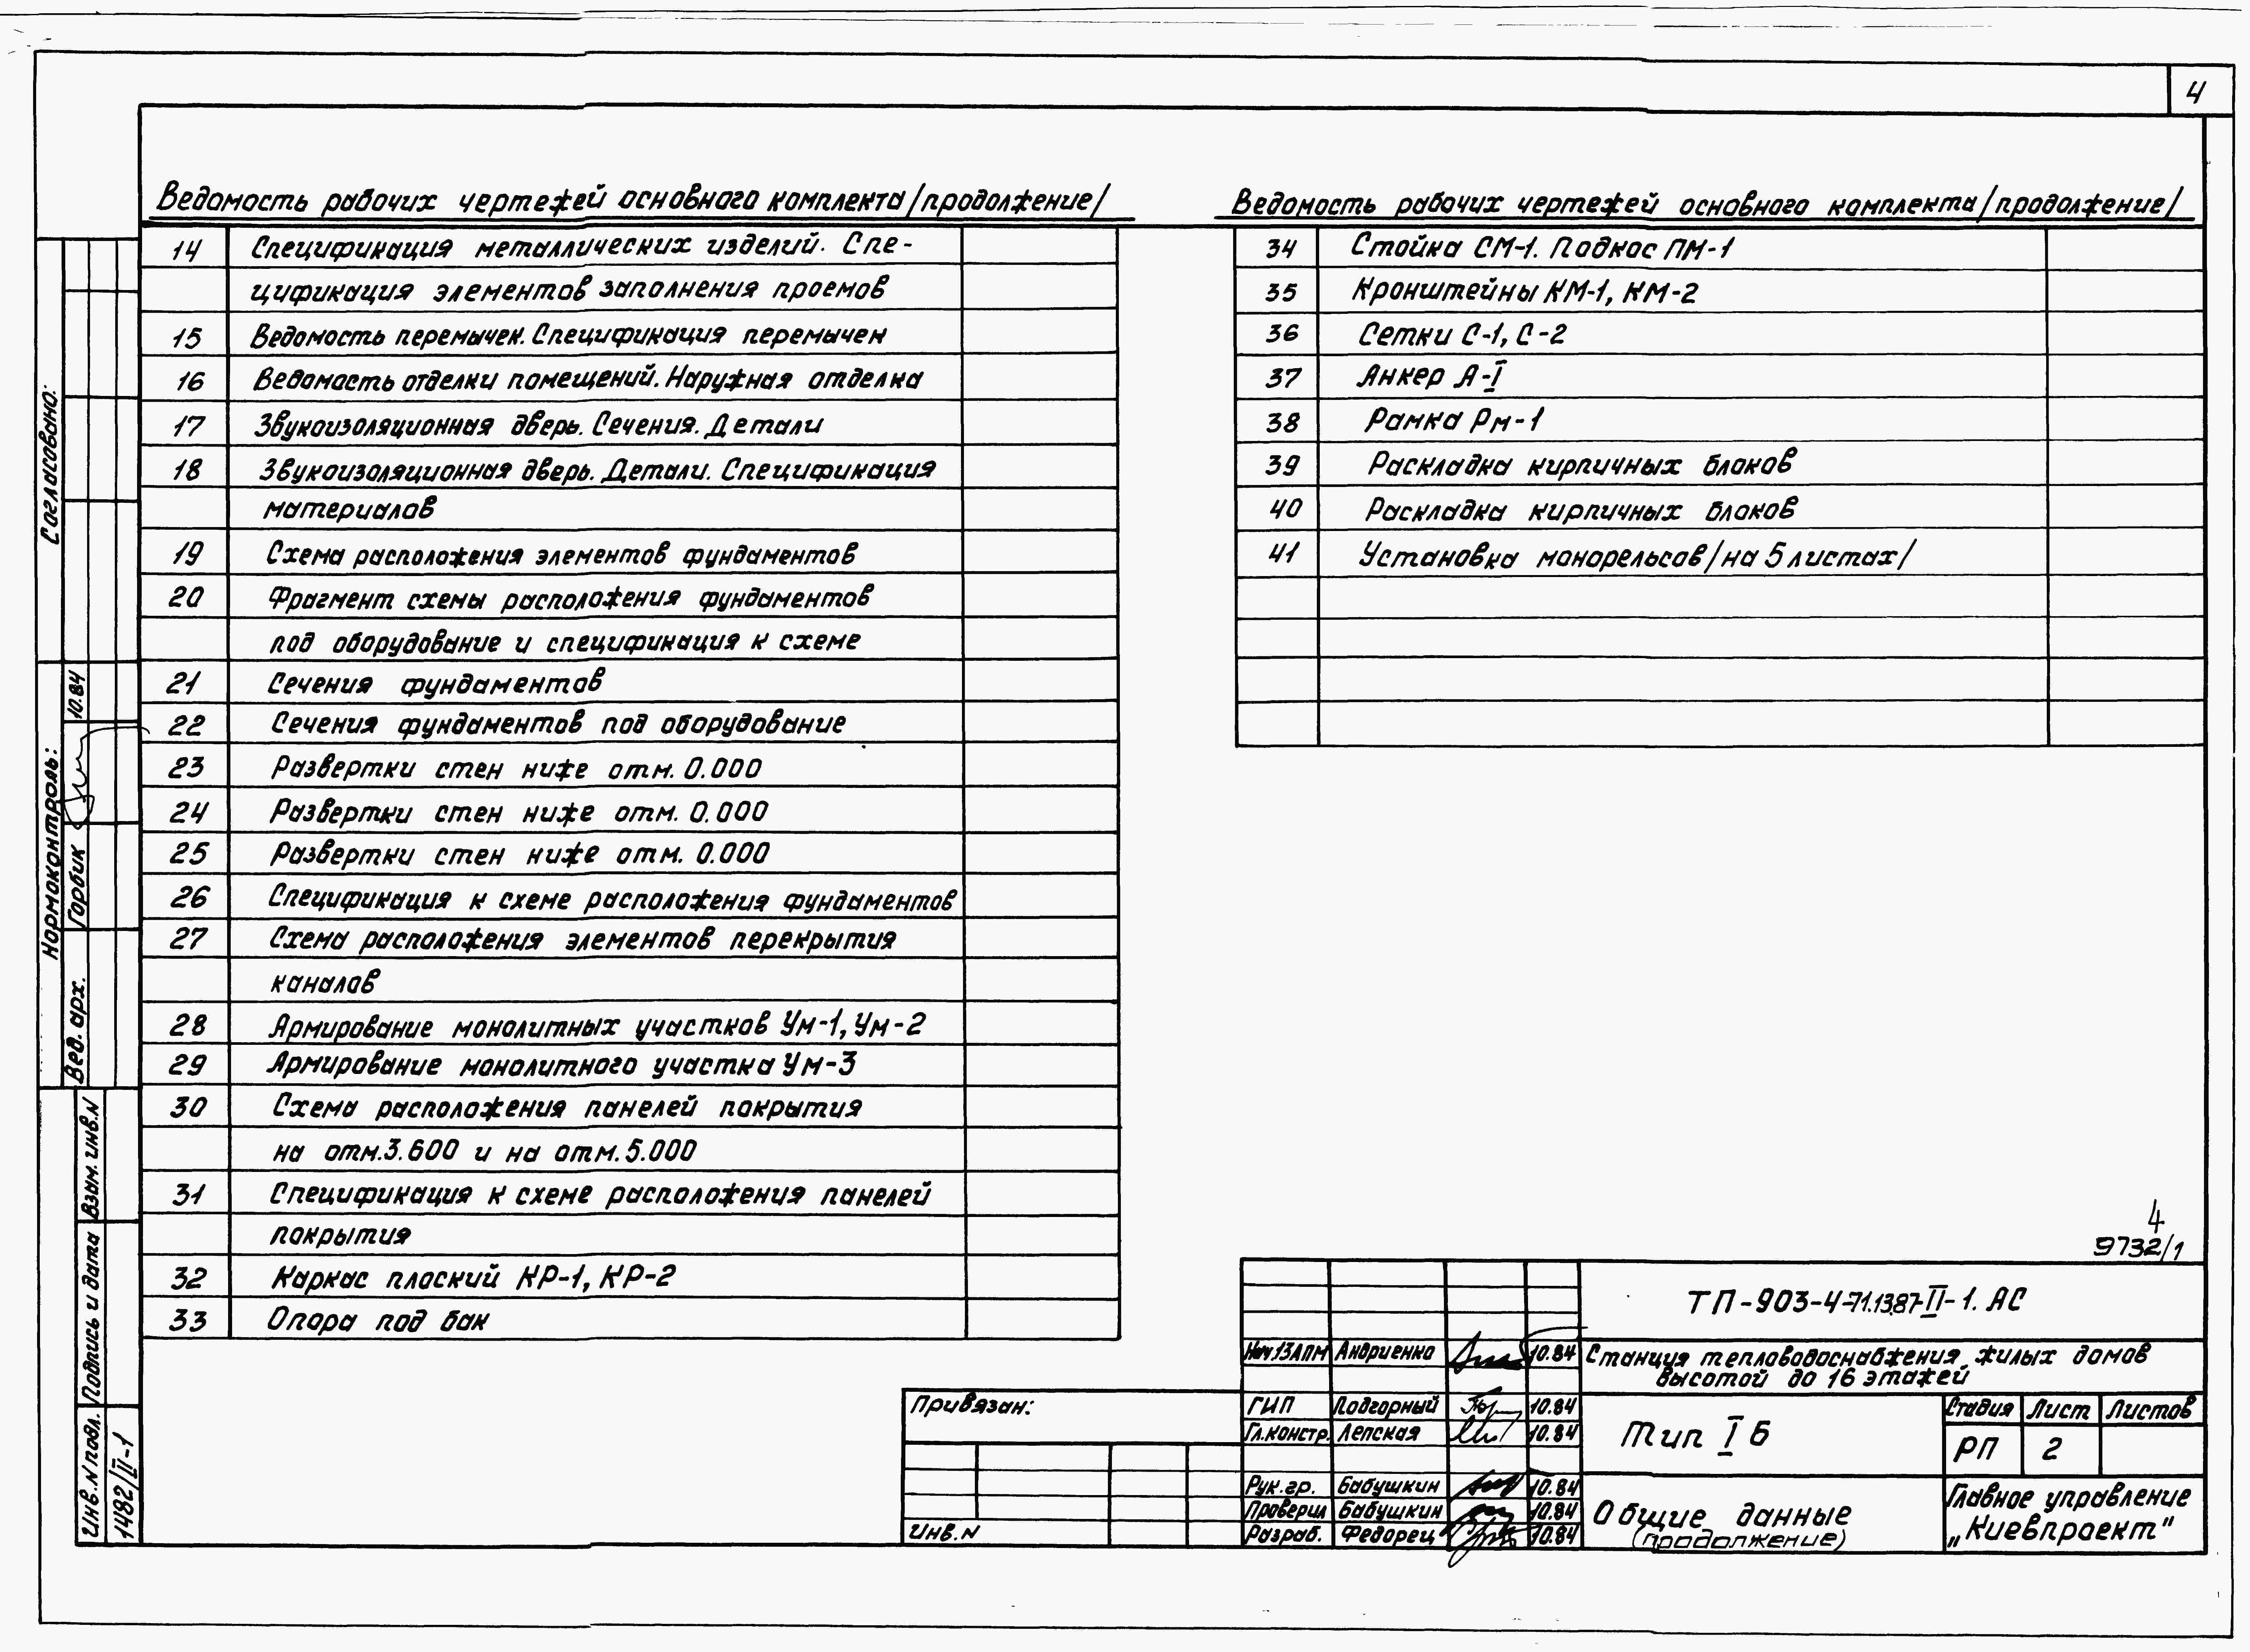 4
Ведомость рабочих чертежей основного комплекта /продолжение/
14 Спецификация металлических изделий. Спе-
цификация элементов заполнения проемов
15 Ведомость перемычек. Спецификация перемычек
16 Ведомость отделки помещений. Наружная отделка
17 Звукоизоляционная дверь. Сечения. Детали
18 Звукоизоляционная дверь. Детали. Спецификация
материалов
19 Схема расположения элементов фундаментов
20 Фрагмент схемы расположения фундаментов
под оборудование и спецификация к схеме
21 Сечения фундаментов
22 Сечения фундаментов под оборудование
23 Развертки стен ниже отм. 0.000
24 Развертки стен ниже отм. 0.000
25 Развертки стен ниже отм. 0.000
26 Спецификация к схеме расположения фундаментов
27 Схема расположения элементов перекрытия
каналов
28 Армирование монолитных участков Ум-1, Ум-2
29 Армирование монолитного участка Ум-3
30 Схема расположения панелей покрытия
на отм. 3.600 и на отм. 5.000
31 Спецификация к схеме расположения панелей
покрытия
32 Каркас плоский КР-1, КР-2
33 Опора под бак
Ведомость рабочих чертежей основного комплекта /продолжение/
34 Стойка СМ-1. Подкос ПМ-1
35 Кронштейны КМ-1, КМ-2
36 Сетки С-1, С-2
37 Анкер А-I
38 Рамка Рм-1
39 Раскладка кирпичных блоков
40 Раскладка кирпичных блоков
41 Установка монорельсов /на 5 листах/
Согласовано:
Нормоконтроль:
Вед. арх. Горбик 10.84
Взам. инв. N
Подпись и дата
Инв. N подл.
1482/II-1
4
9732/1
ТП-903-4-71.13.87-II-1. АС
Станция тепловодоснабжения жилых домов
высотой до 16 этажей
Нач.13АПМ Андриенко 10.84
ГИП Подгорный 10.84
Гл.констр. Лепская 10.84
Рук.гр. Бабушкин 10.84
Проверил Бабушкин 10.84
Разраб. Федорец 10.84
Тип I Б
Стадия Лист Листов
РП 2
Общие данные
(продолжение)
Главное управление
„Киевпроект"
Привязан:
Инв. N